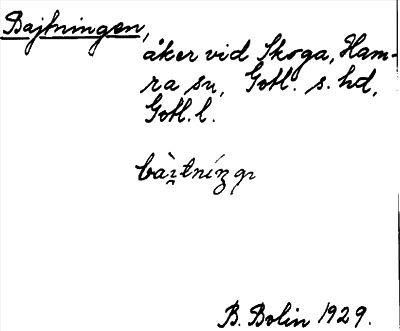 Bajtningen,
åker vid Skoga, Ham-
ra sn, Gotl. s. hd,
Gotl. l.
B. Bolin 1929.